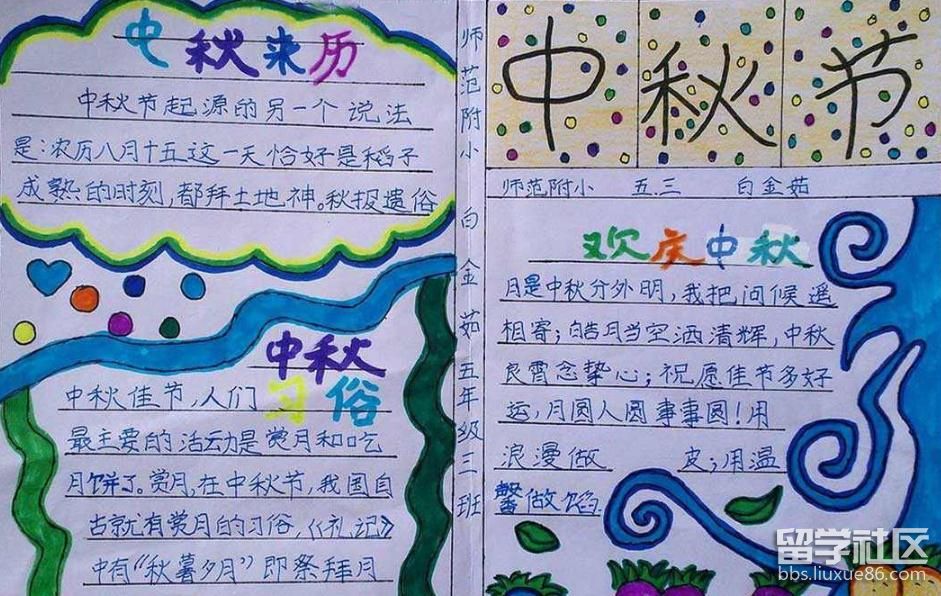 中秋来历
中秋节起源的另一个说法
是:农历八月十五这一天恰好是稻子
成熟的时刻,都拜土地神。秋报遗俗
中秋
习俗
中秋佳节,人们
最主爱的活动是赏月和吃
月饼了。赏月,在中秋节,我国自
古就有赏月的习俗,《礼记》
中有“秋暮夕月”即祭拜月
师范附小 白金茹 五年级三班
中秋节
师范附小 五.三 白金茹
欢庆中秋
月是中秋分外明,我把问候遥
相寄;皓月当空洒清辉,中秋
良宵念挚心;祝愿佳节多好
运,月圆人圆事事圆!用
浪漫做 皮;用温
馨做馅
留学社区
bbs.liuxue86.com